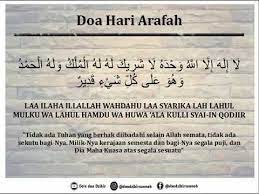 Doa Hari Arafah
لَا إِلَهَ إِلَّا اللَّهُ وَحْدَهُ لَا شَرِيكَ لَهُ لَهُ الْمُلْكُ وَلَهُ الْحَمْدُ
وَهُوَ عَلَى كُلِّ شَيْءٍ قَدِيرٌ
LAA ILAHA ILLALLAH WAHDAHU LAA SYARIKA LAH LAHUL
MULKU WA LAHUL HAMDU WA HUWA 'ALA KULLI SYAI-IN QODIIR
"Tidak ada Tuhan yang berhak diibadahi selain Allah semata, tidak ada
sekutu bagi-Nya, Milik-Nya kerajaan semesta dan bagi-Nya segala puji, dan
Dia Maha Kuasa atas segala sesuatu"
Doa dan Dzikir